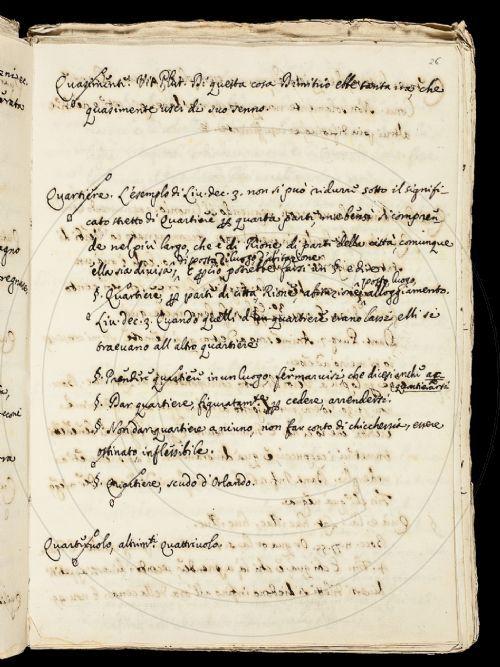 26
Quasimente. Vit. Plut. Di questa cosa Dimitrio ebbe tanta ira, che
quasimente uscì di suo senno.
Quartiere. L'esemplo di Liv. dec. 3. non si può ridurre sotto il signifi-
cato stretto di Quartiere per quarta parte, ma bensì si compren
de nel più largo, che è di Rione, di parte della città, comunque
di posta, di luogo d'abitazione
ella sia divisa, e perciò potrebbe farsi un §. e dire
posto, luogo,
§. Quartiere, per parte di città, Rione, abitazione, alloggiamento.
Liv. dec. 3. Quando quelli d'un quartiere erano lassi, elli si
traevano all'altro quartiere
§. Prendere quartiere in un luogo. fermarvisi che dicesi anche ac-
quartierarsi
§. Dar quartiere, figuratam.te per cedere arrendersi.
§. Non dar quartiere a niuno, non far conto di chicchessia, essere
ostinato inflessibile.
§. Quartiere, scudo d'Orlando.
Quartiruolo, altrim.ti quattriuolo.